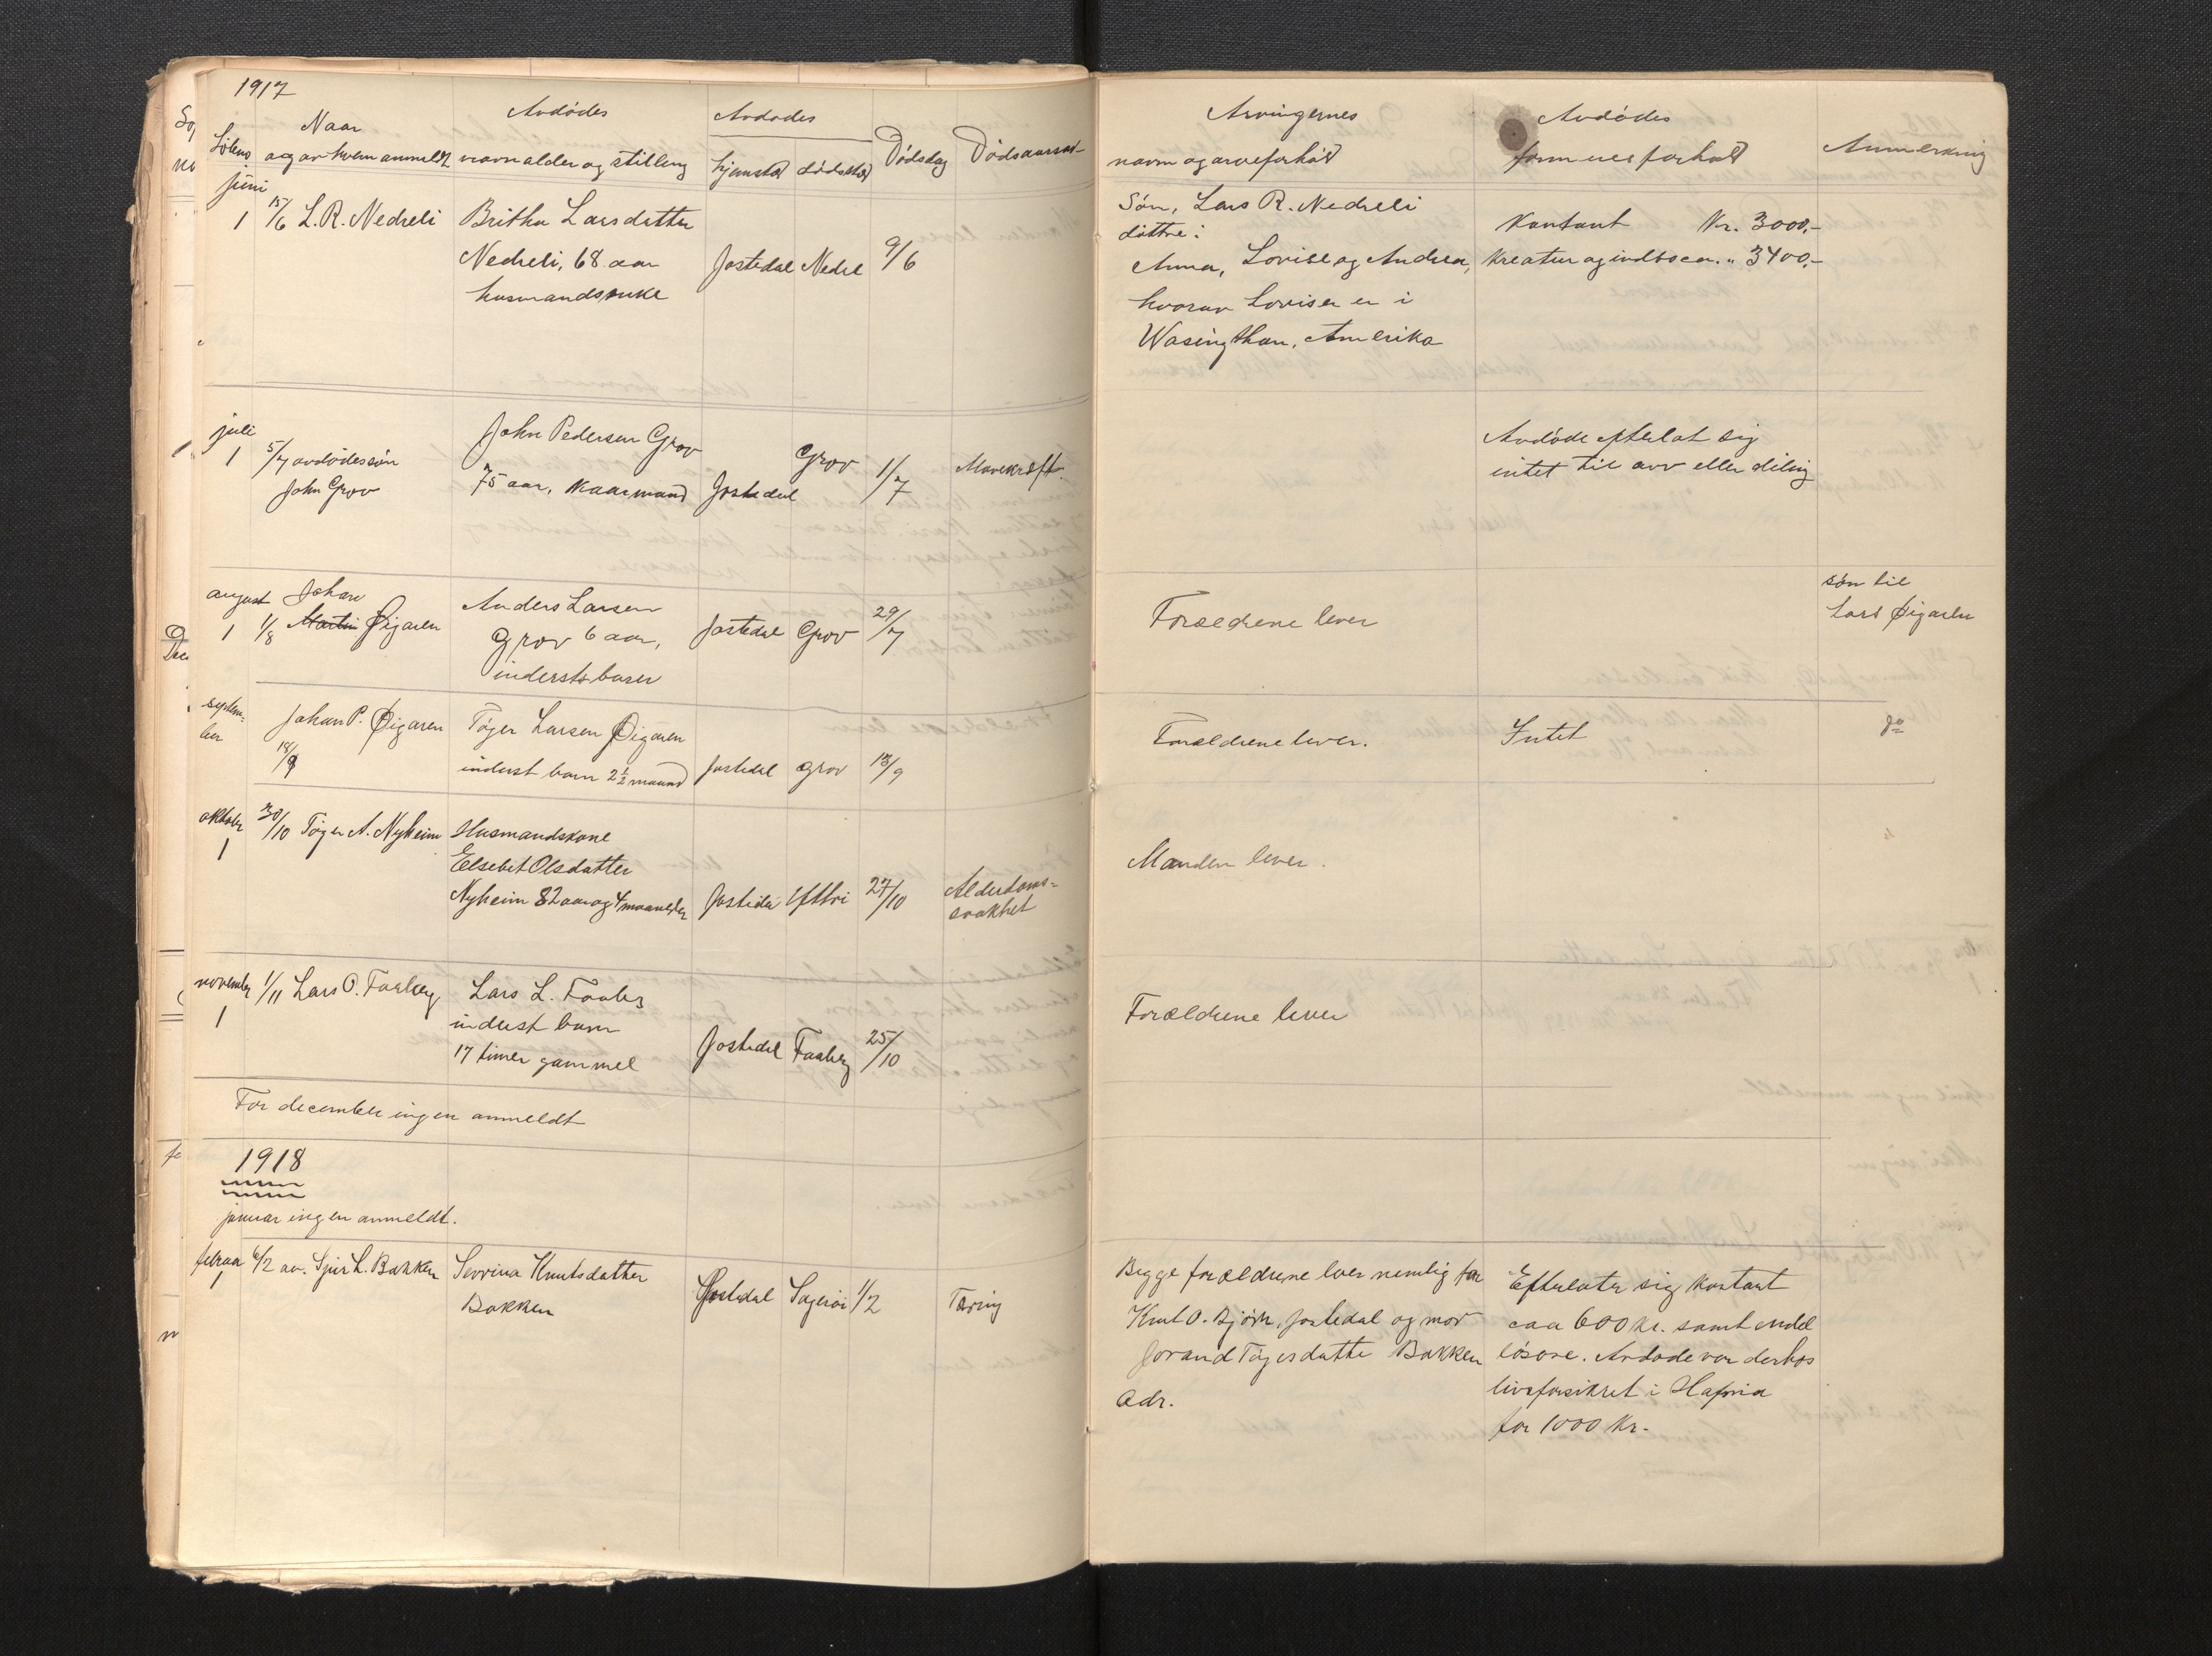 1917
Løbeno.
Naar
og av hvem anmeldt
Avdødes
navn alder og stilling
Avdødes
hjemsted dødssted
Dødsdag
Dødsaarsak
Arvingernes
navn og arveforhold
Avdødes
formuesforhold
Anmerkning
juni
1 15/6 L. R. Nedreli
Britha Larsdatter
Nedreli, 68 aar
husmandsenke
Jostedal Nedrel 9/6
Søn, Lars R. Nedreli
døttre:
Anna, Lovise og Andrea,
hvorav Lovise er i
Wasingthon, Amerika
Kontant Kr. 3000,-
Kreatur og indboeen. " 3400,-
juli
1 5/7 avdødes søn
John Grov
John Pedersen Grov
75 aar, Kaarmand
Jostedal Grov 1/7 Mavekræft.
Avdøde efterlot sig
intet til arv eller deling
august
1 1/8 Johan
Martin Øigaren
Anders Larsen
Grov 6 aar,
inderstsbarn
Jostedal Grov 29/7
Forældrene lever
søn til
Lars Øigarden
septem-
ber
Johan P. Øigaren
18/9
Tøger Larsen Øigaren
inderst barn 2½ maaned
Jostedal Grov 18/9
Forældrene lever.
Intet
do
oktober
1
30/10 Tøger A. Nyheim
Husmandskone
Elsebet Olsdatter
Nyheim 82 aar og 4 maaneder
Jostedal 27/10
Alderdoms-
svakhet
Manden lever.
november
1
1/11 Lars O. Faaberg
Lars L. Faaberg
inderst barn
17 timer gammel
Jostedal Faaberg 25/10
Forældrene lever
For december ingen anmeldt
1918
januar ingen anmeldt.
februar
1
6/2 av. Sjur L. Bakken
Severina Knutsdatter
Bakken
Jostedal Sagerøi 1/2 Tæring
Begge forældrene lever nemlig far
Knut O. Bjørk, Jostedal og mor
Jorand Tøgersdatter Bakken
adr.
Efterlater sig kontant
caa 600 kr. samt endel
løsøre. Avdøde var derhos
livsforsikret i Hafnia
for 1000 kr.